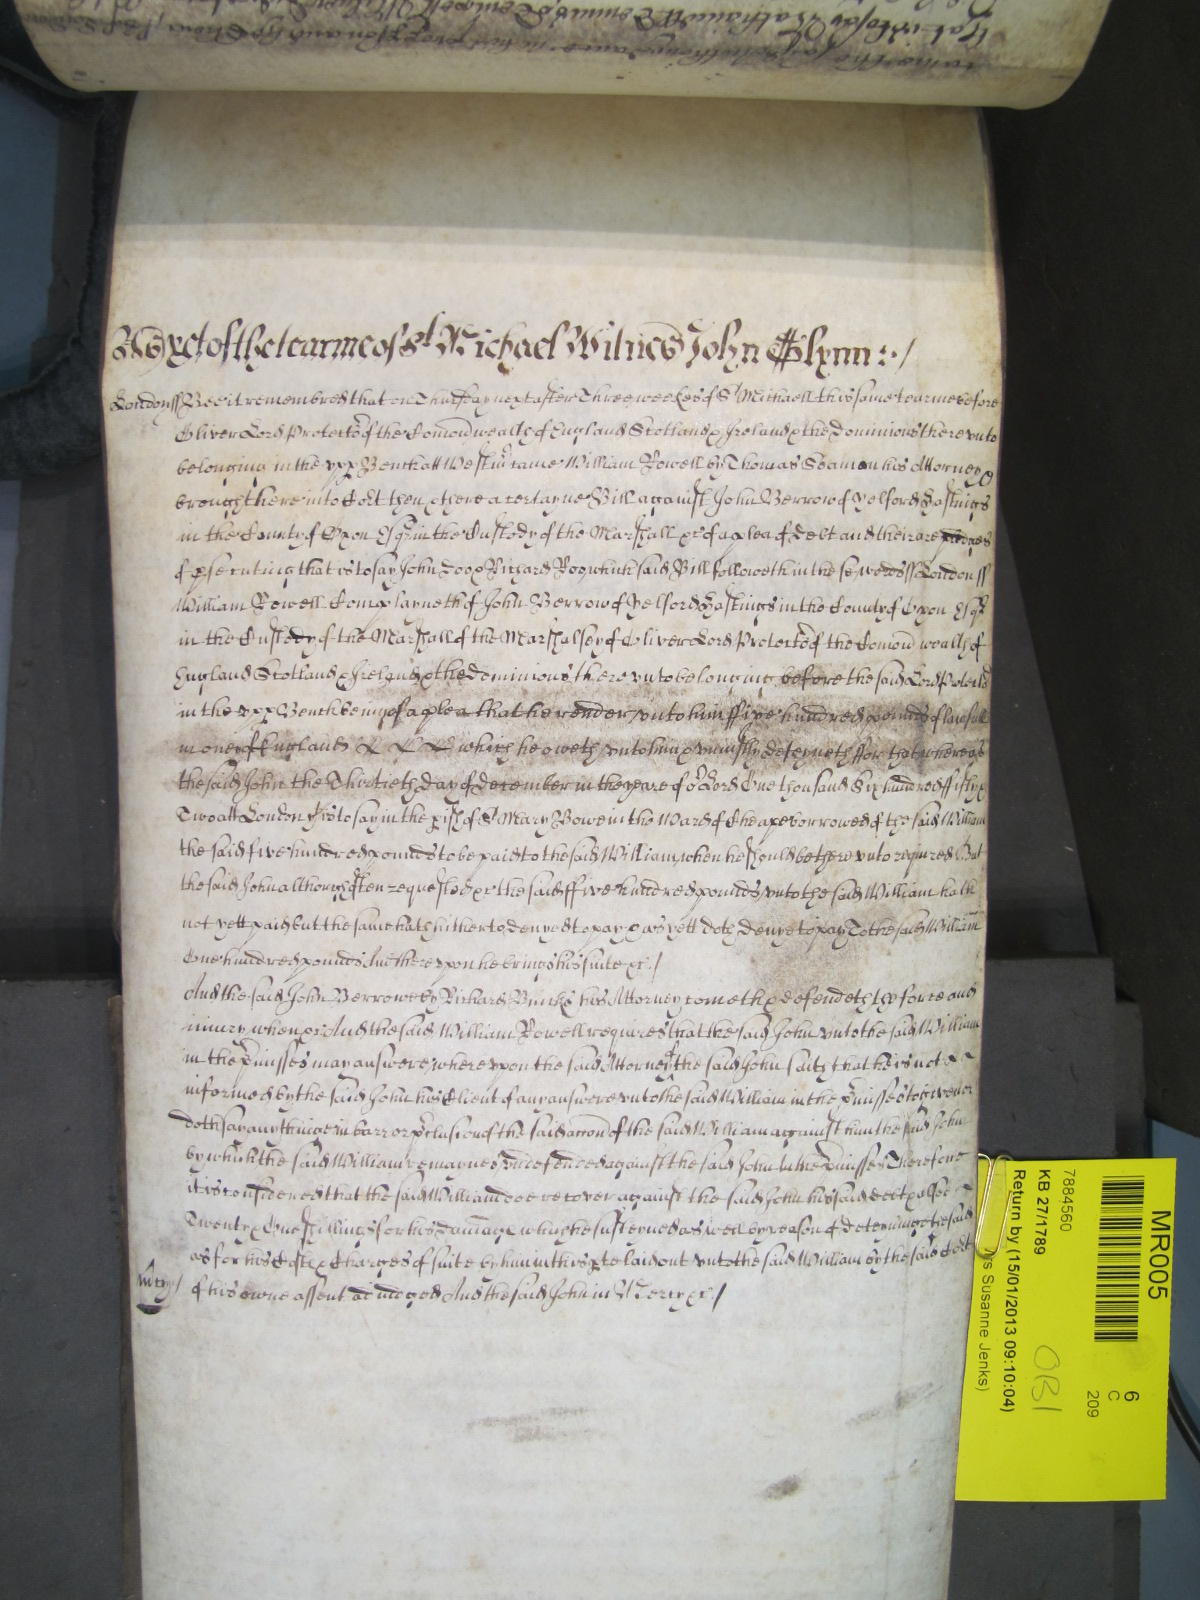 As yet of the tearme of St Michael Witnes John Glynn :./
London ss Bee it remembred that on Thursday next after Three weekes of St Michaell this same tearme before
Oliver Lord Protector of the Comonwealth of England Scotland & Ireland & the dominions there unto
belonging in the upp Bench att Westmr came William Rowell by Thomas Seaman his Attorney &
brought here into Cort then & there a certayne Bill against John Berrow of Yelford Hastings
in the County of Oxon Esqr in the Custody of the Marshall &c of a plea of Debt and their are pledges
of psecuting that is to say John Doo & Richard Roo which said Bill followeth in these words ss London ss
William Rowell Complayneth of John Berrow of Yelford Hastings in the County of Oxon Esqr
in the Custody of the Marshall of the Marshalsey of Oliver Lord Protector of the Comonwealth of
England Scotland & Ireland & the dominions there unto belonging before the said Lord Protector
in the upp Bench being of a plea that he render unto him ffive hundred pounds of lawfull
money of England which he oweth unto him & uniustly deteyneth ffor that whereas
the said John the Thirtieth day of december in the yeare of or Lord One thousand Six hundred ffifty &
Two att London that is to say in the pish of St Mary Bowe in the Ward of Cheape borrowed of the said William
the said five hundred pounds to be paid to the said William when he should be there unto required But
the said John although often requested &c the said ffive hundred pounds unto the said William hath
not yett paid but the same hath hitherto denyed to pay & as yett doth denye to pay To the said William
One hundred pounds dam there upon he brings his suite &c./
And the said John Berrowe by Richard his Attorney cometh & defendeth the force and
iniury when &c And the said William Rowell requires that the said John unto the said William
in the pmisses may answere, where upon the said Attorney of the said John saith that he is not
informed by the said John his Client of any answere unto the said William in the pmisses to give nor
doth say any thinge in barr or pclusion of the said accon of the said William against him the said John
by which the said William remaynes undefended against the said John in the pmisses Therefore
it is considered that the said William doe recover against the said John his said debt & alsoe
Twenty & One shillings for his damage which he susteyned as well by reason of deteyning the said
as for his Costes & Charges of suite by him in this pte laid out unto the said William by the said Cort
of his owne assent adiudged And the said John in Mercy &c./
mcy./
MR005
6
C
209
7884560
KB 27/1789
Return by (15/01/2013 09:10:04)
OB1
s Susanne Jenks)